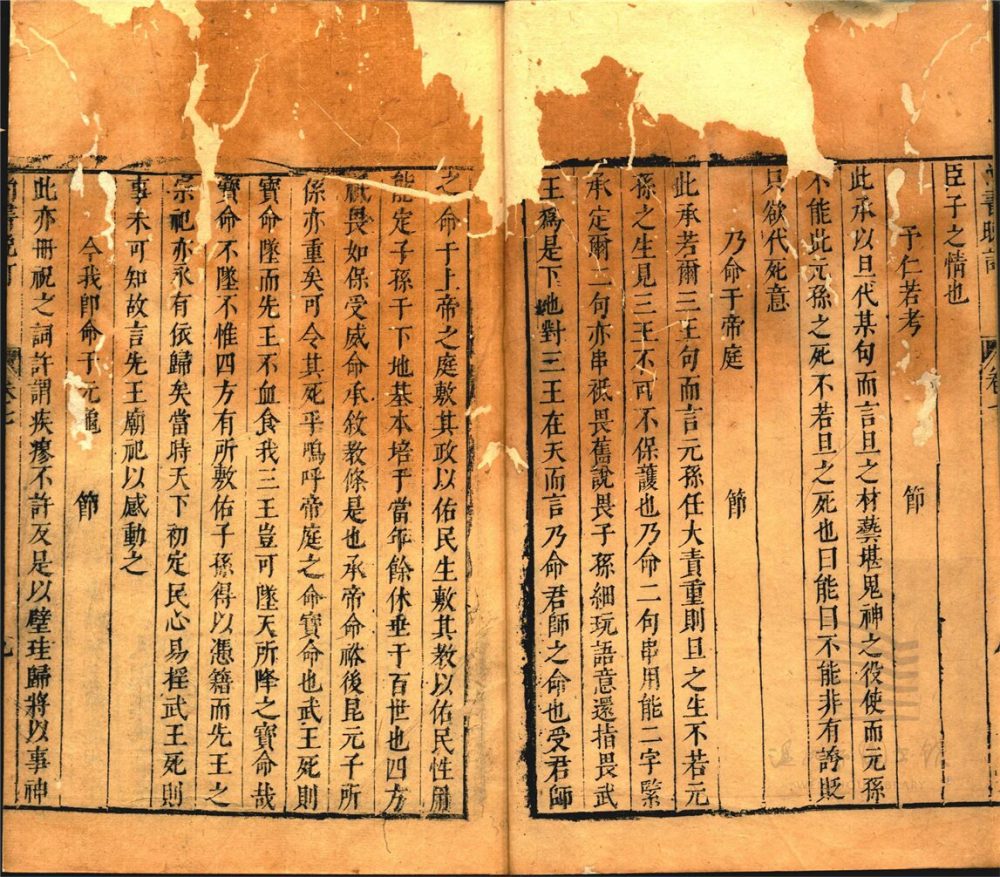 臣子之情也
予仁若考 節
此承以旦代某句而言旦之材藝堪鬼神之役使而元孫
不能此元孫之死不若旦之死也曰能曰不能非有誇貶
只欲代死意
乃命于帝庭 節
此承若爾三王句而言元孫任大責重則旦之生不若元
孫之生見三王不可不保護也乃命二句串用能二字緊
承定爾二句亦串祗畏舊說畏子孫細玩語意還指畏武
王爲是下地對三王在天而言乃命君師之命也受君師
之命于上帝之庭敷其政以佑民生敷其教以佑民性用
能定子孫于下地基本培于當年餘休垂于百世也四方
祗畏如保受威命承敘教條是也承帝命裕後昆元子所
係亦重矣可令其死乎嗚呼帝庭之命寶命也武王死則
寶命墜而先王不血食我三王豈可墜天所降之寶命哉
寶命不墜不惟四方有所敷佑子孫得以憑籍而先王之
宗祀亦永有依歸矣當時天下初定民心易搖武王死則
事未可知故言先王廟祀以感動之
今我卽命于元龜 節
此亦冊祝之詞許謂疾瘳不許反是以璧珪歸將以事神